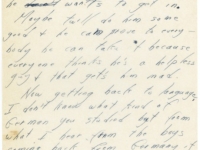 he wants to get in.
Maybe he'll do him some
good & he can prove to every-
body he can take it because
everyone thinks he's a helpless
guy & that gets him mad.
Now getting back to
I don't know what kind of
German you studied but from
what I hear from the boys
coming back from Germany it